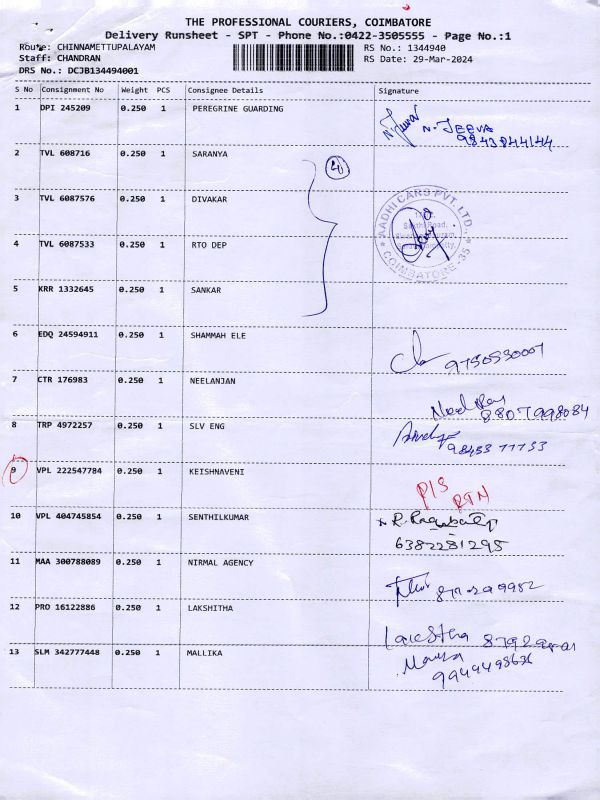 THE PROFESSIONAL COURIERS, COIMBATORE
Delivery Runsheet - SPT - Phone No.:0422-3505555 - Page No.:1
Route: CHINNAMETTUPALAYAM RS No.: 1344940
Staff: CHANDRAN RS Date: 29-Mar-2024
DRS No.: DCJB134494001
S No Consignment No Weight PCS Consignee Details Signature
1 DPI 245209 0.250 1 PEREGRINE GUARDING
N. JEEVA
9843044144
2 TVL 608716 0.250 1 SARANYA
4
3 TVL 6087576 0.250 1 DIVAKAR
AADHI CARS PVT. LTD.
COIMBATORE-35
4 TVL 6087533 0.250 1 RTO DEP
5 KRR 1332645 0.250 1 SANKAR
6 EDQ 24594911 0.250 1 SHAMMAH ELE
9750530007
7 CTR 176983 0.250 1 NEELANJAN
8807998084
8 TRP 4972257 0.250 1 SLV ENG
9 VPL 222547784 0.250 1 KEISHNAVENI
P/S
RTN
10 VPL 404745854 0.250 1 SENTHILKUMAR
6382281295
11 MAA 300788089 0.250 1 NIRMAL AGENCY
12 PRO 16122886 0.250 1 LAKSHITHA
13 SLM 342777448 0.250 1 MALLIKA